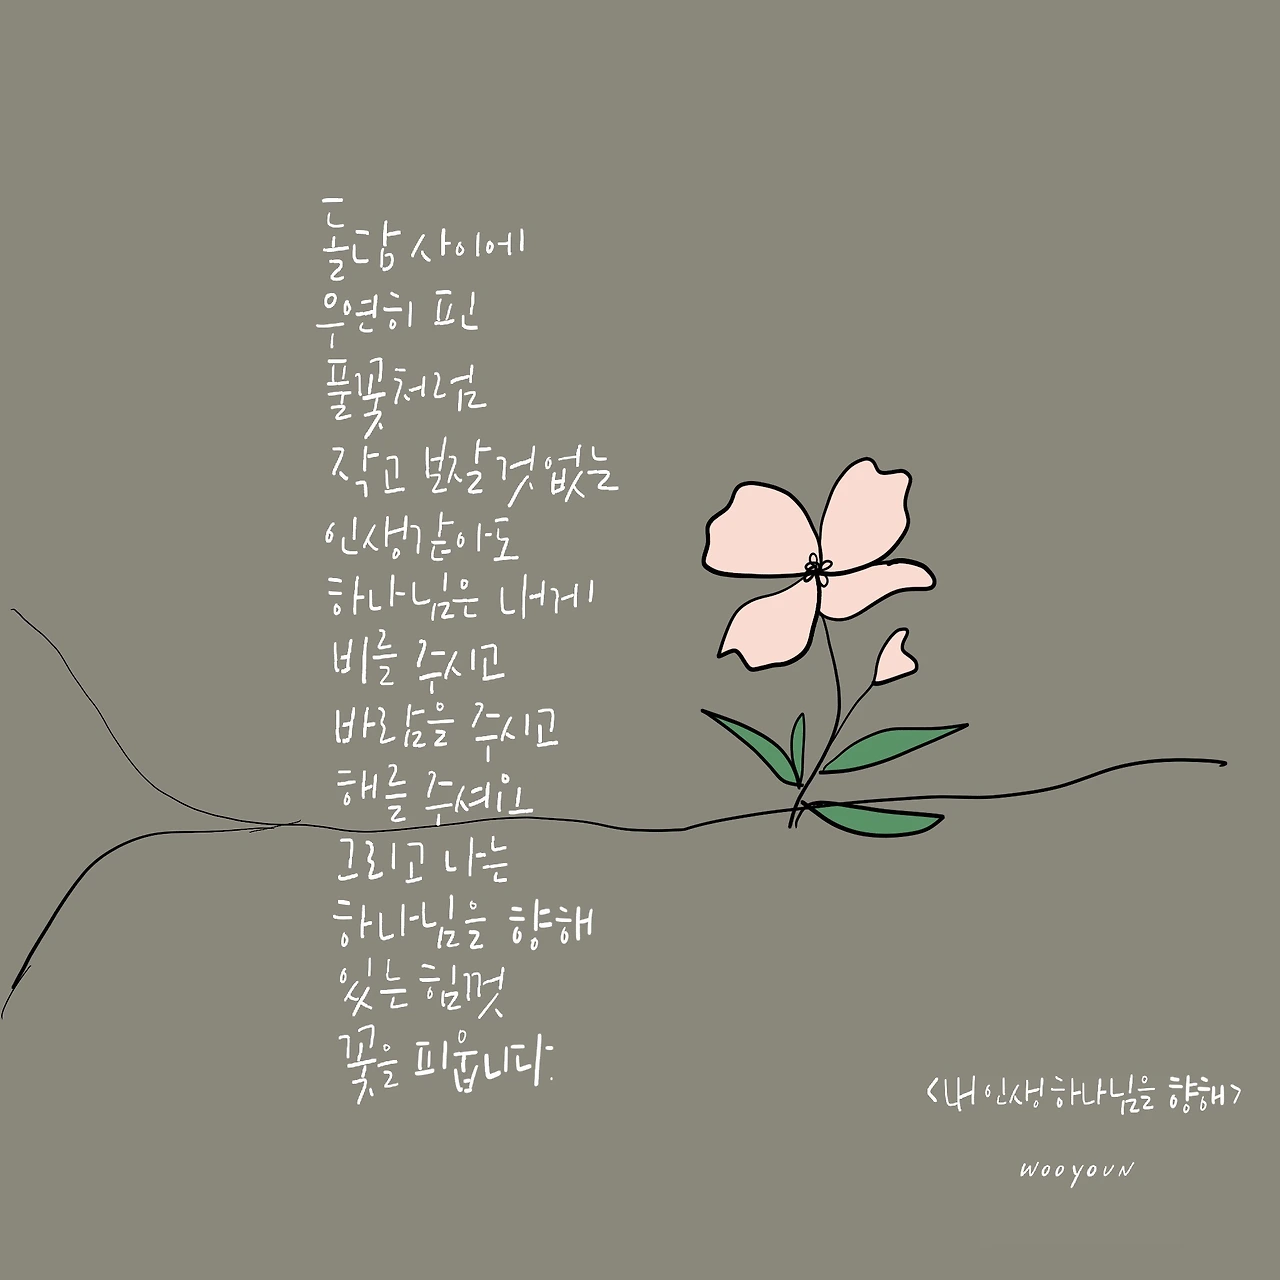 돌담 사이에
우연히 핀
풀꽃처럼
작고 보잘것없는
인생같아도
하나님은 내게
비를 주시고
바람을 주시고
해를 주셔요
그리고 나는
하나님을 향해
있는 힘껏
꽃을 피웁니다.
<내 인생 하나님을 향해>
WOOYOUN